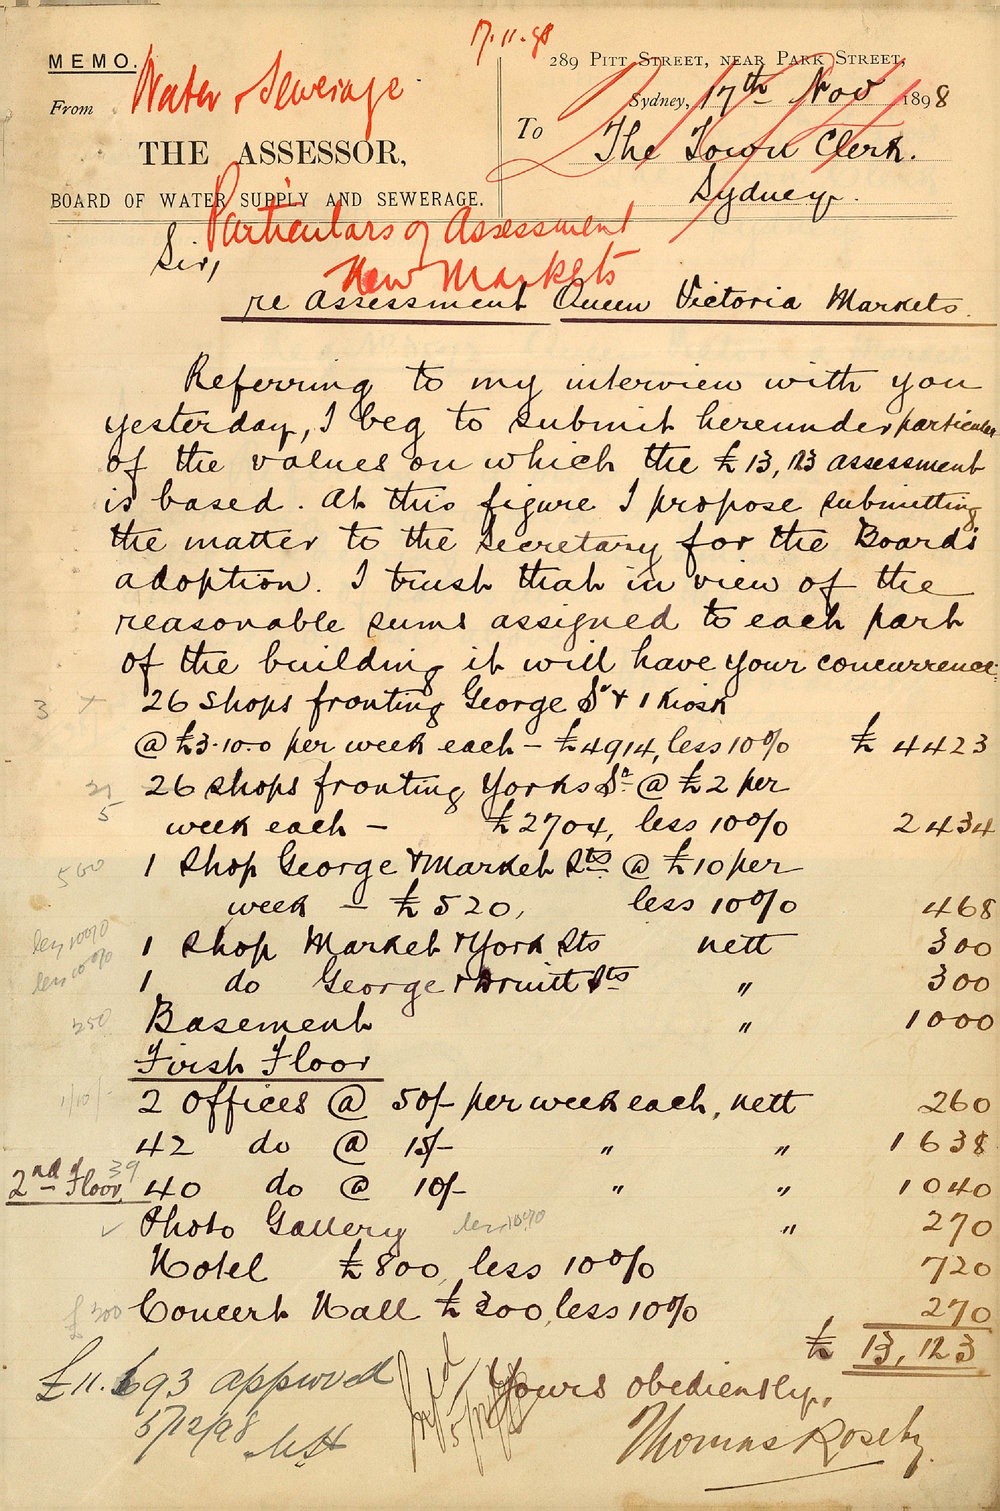 17.11.98
MEMO.
289 PITT STREET, NEAR PARK STREET,
From Water & Sewerage
Sydney, 17th Nov 1898
THE ASSESSOR,
To The Town Clerk.
BOARD OF WATER SUPPLY AND SEWERAGE.
Sydney.
Particulars of Assessment
Sir,
New Markets
re assessment Queen Victoria Markets.
Referring to my interview with you
yesterday, I beg to submit hereunder particulars
of the values on which the £13,123 assessment
is based. At this figure I propose submitting
the matter to the Secretary for the Board's
adoption. I trust that in view of the
reasonable sums assigned to each part
of the building it will have your concurrence.
3 x 26 shops fronting George St & 1 Kiosk
@ £3.10.0 per week each - £4914, less 10% £ 4423
26 shops fronting York St. @ £2 per
5 week each - £2704, less 10% 2434
500 1 Shop George & Market Sts @ £10 per
week - £520, less 10% 468
less 10% 1 Shop Market & York Sts nett 300
less 10% 1 do George & Druitt Sts " 300
250 Basement " 1000
First Floor
1/10/- 2 offices @ 50/- per week each, nett 260
42 do @ 15/- " " 1638
2nd Floor, 39 40 do @ 10/- " " 1040
✓ Photo Gallery less 10% " 270
Hotel £800, less 10% 720
£200 Concert Hall £300, less 10% 270
£ 13,123
£11.693 approved
Yours obediently,
5/12/98
Thomas Roseby.